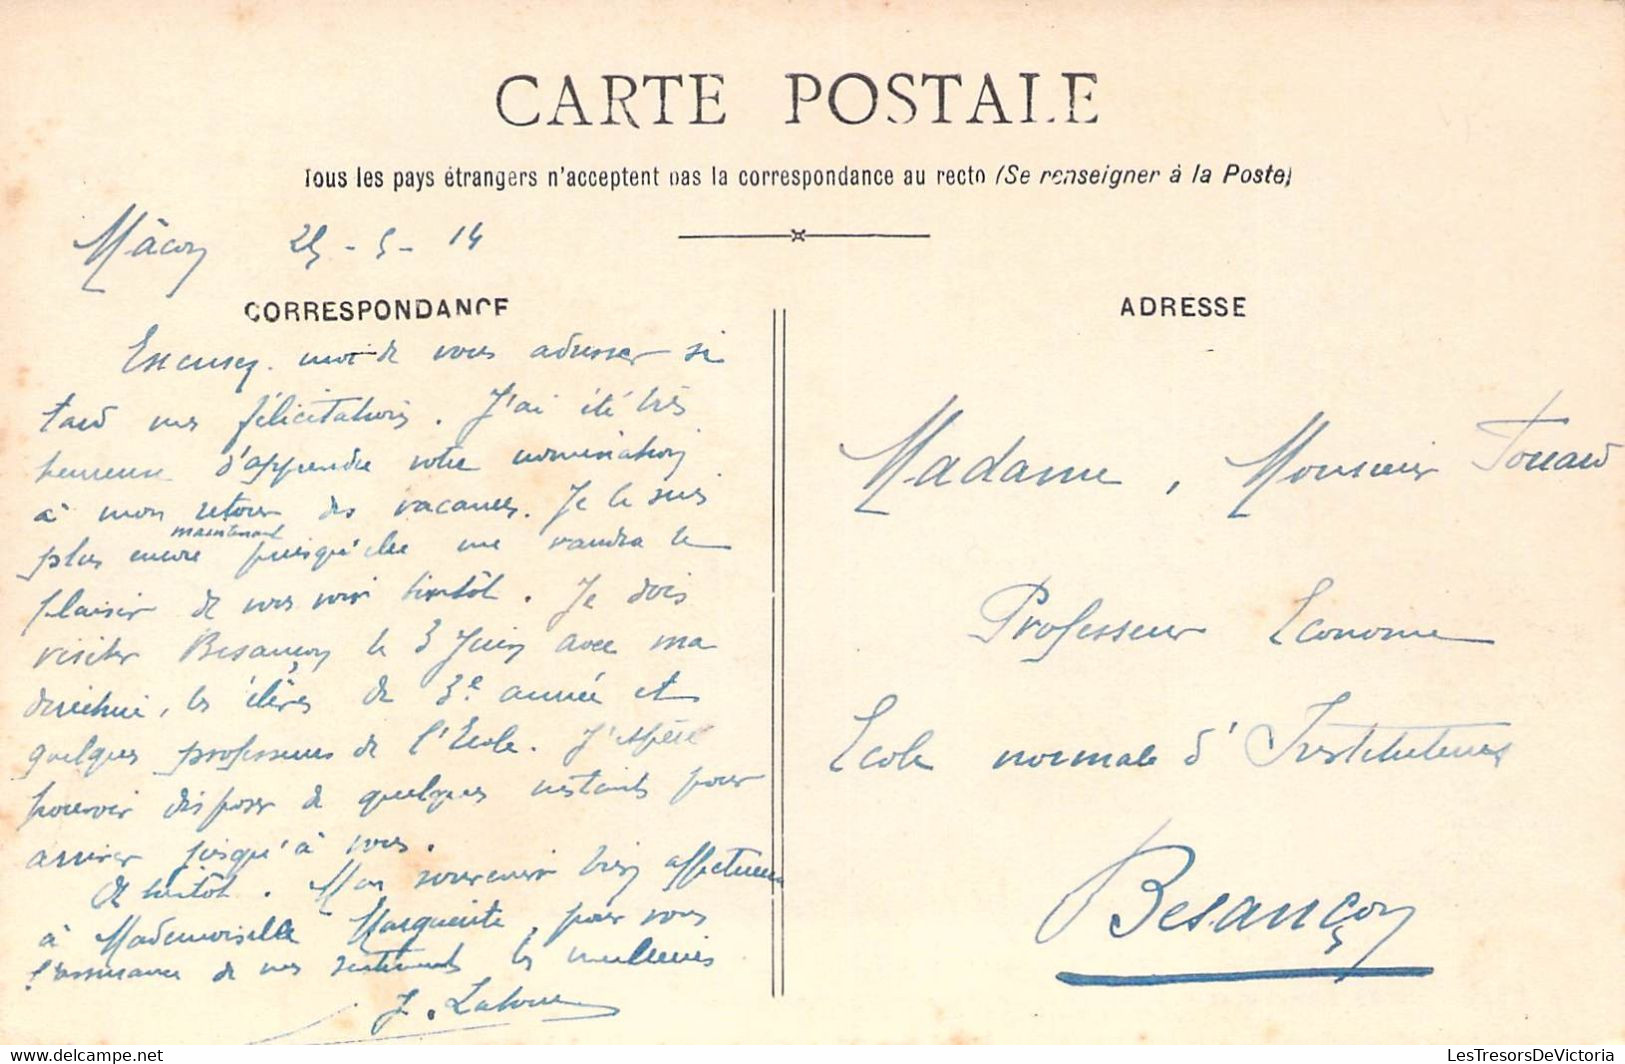 CARTE POSTALE
Tous les pays étrangers n'acceptent pas la correspondance au recto (Se renseigner à la Poste)
Mâcon 25-5-14
CORRESPONDANCE
Excusez-moi de vous adresser si
tard mes félicitations. J'ai été très
heureuse d'apprendre votre nomination
à mon retour des vacances. Je le suis
maintenant
plus encore puisqu'elle me vaudra le
plaisir de vous voir bientôt. Je dois
visiter Besançon le 3 Juin avec ma
directrice, les élèves de 3e année et
quelques professeurs de l'Ecole. J'espère
pouvoir disposer de quelques instants pour
arriver jusqu'à vous.
A bientôt. Mon souvenir bien affectueux
à Mademoiselle Marguerite, pour vous
l'assurance de mes sentiments les meilleurs
J.
ADRESSE
Madame, Monsieur
Professeur Econome
Ecole normale d'Instituteurs
Besançon
LesTresorsDeVictoria
www.delcampe.net